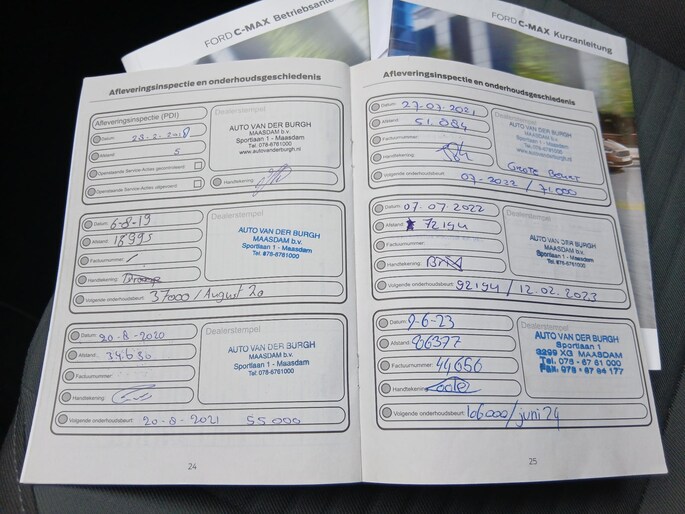 FORD C-MAX Betriebsanle
FORD C-MAX Kurzanleitung
Afleveringsinspectie en onderhoudsgeschiedenis
Afleveringsinspectie (PDI)
Datum: 23-2-2018
Afstand: 5
Openstaande Service-Acties gecontroleerd:
Openstaande Service-Acties uitgevoerd:
Dealerstempel
AUTO VAN DER BURGH
MAASDAM b.v.
Sportlaan 1 - Maasdam
Tel. 078-6761000
www.autovanderburgh.nl
Handtekening:
Datum: 6-8-19
Afstand: 18995
Factuurnummer: /
Handtekening:
Volgende onderhoudsbeurt: 37000 / August 20
Dealerstempel
AUTO VAN DER BURGH
MAASDAM b.v.
Sportlaan 1 - Maasdam
Tel. 078-6761000
Datum: 20-8-2020
Afstand: 34650
Factuurnummer:
Handtekening:
Volgende onderhoudsbeurt: 20-8-2021 55000
Dealerstempel
AUTO VAN DER BURGH
MAASDAM b.v.
Sportlaan 1 - Maasdam
Tel. 078-6761000
24
Afleveringsinspectie en onderhoudsgeschiedenis
Datum: 27-07-2021
Afstand: 51.084
Factuurnummer:
Handtekening:
Volgende onderhoudsbeurt: 07-2022 / 71.000
Dealerstempel
AUTO VAN DER BURGH
MAASDAM b.v.
Sportlaan 1 - Maasdam
Tel. 078-6761000
www.autovanderburgh.nl
Grote Beurt
Datum: 07.07.2022
Afstand: 72194
Factuurnummer:
Handtekening:
Volgende onderhoudsbeurt: 92194 / 12.02.2023
Dealerstempel
AUTO VAN DER BURGH
MAASDAM b.v.
Sportlaan 1 - Maasdam
Tel. 078-6761000
Datum: 9-6-23
Afstand: 86377
Factuurnummer: 44656
Handtekening:
Volgende onderhoudsbeurt: 106000 / juni 24
Dealerstempel
AUTO VAN DER BURGH
Sportlaan 1
3299 XG MAASDAM
Tel. 078 - 67 61 000
Fax. 078 - 67 64 177
25